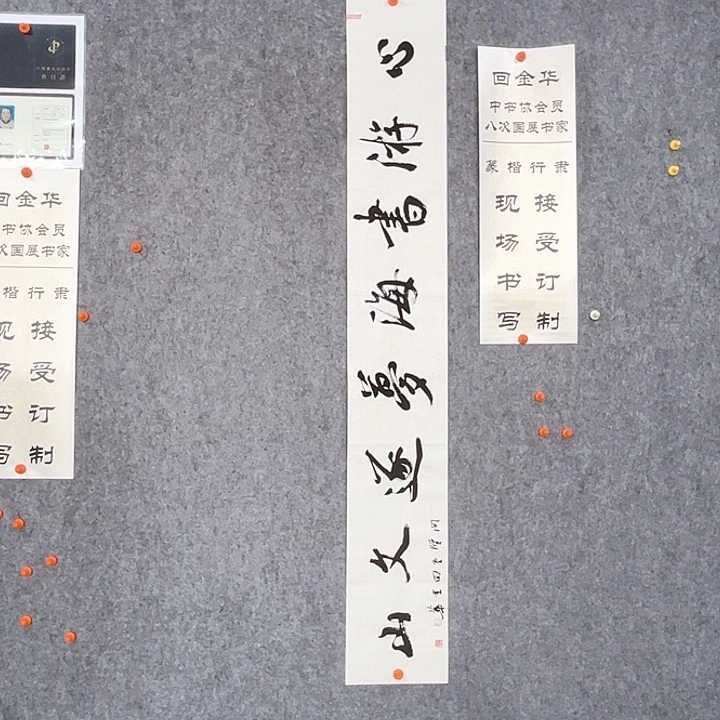 回金华
书协会员
次国展书家
楷行隶
现场书写
接受订制
心游書海夢逐文山
回金華
回金华
中书协会员
八次国展书家
篆楷行隶
现场书写
接受订制